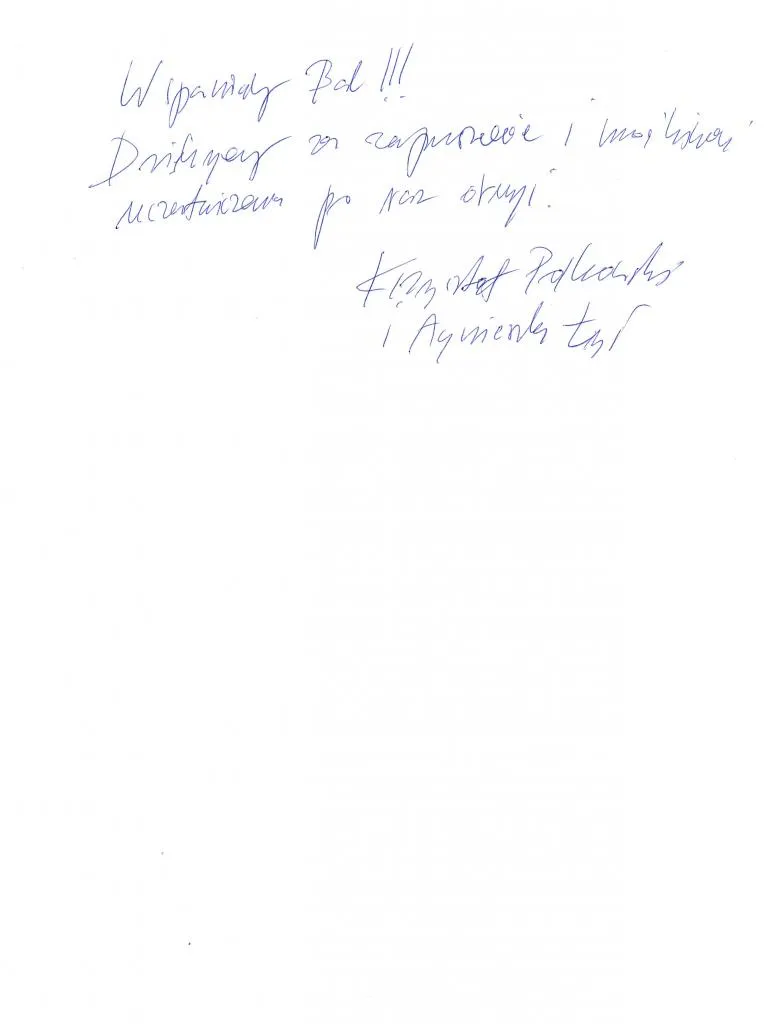 Wspaniały Bal!!!
Dziękujemy za zaproszenie i możliwość
uczestniczenia po raz drugi.
Krzysztof
i Agnieszka Łyś